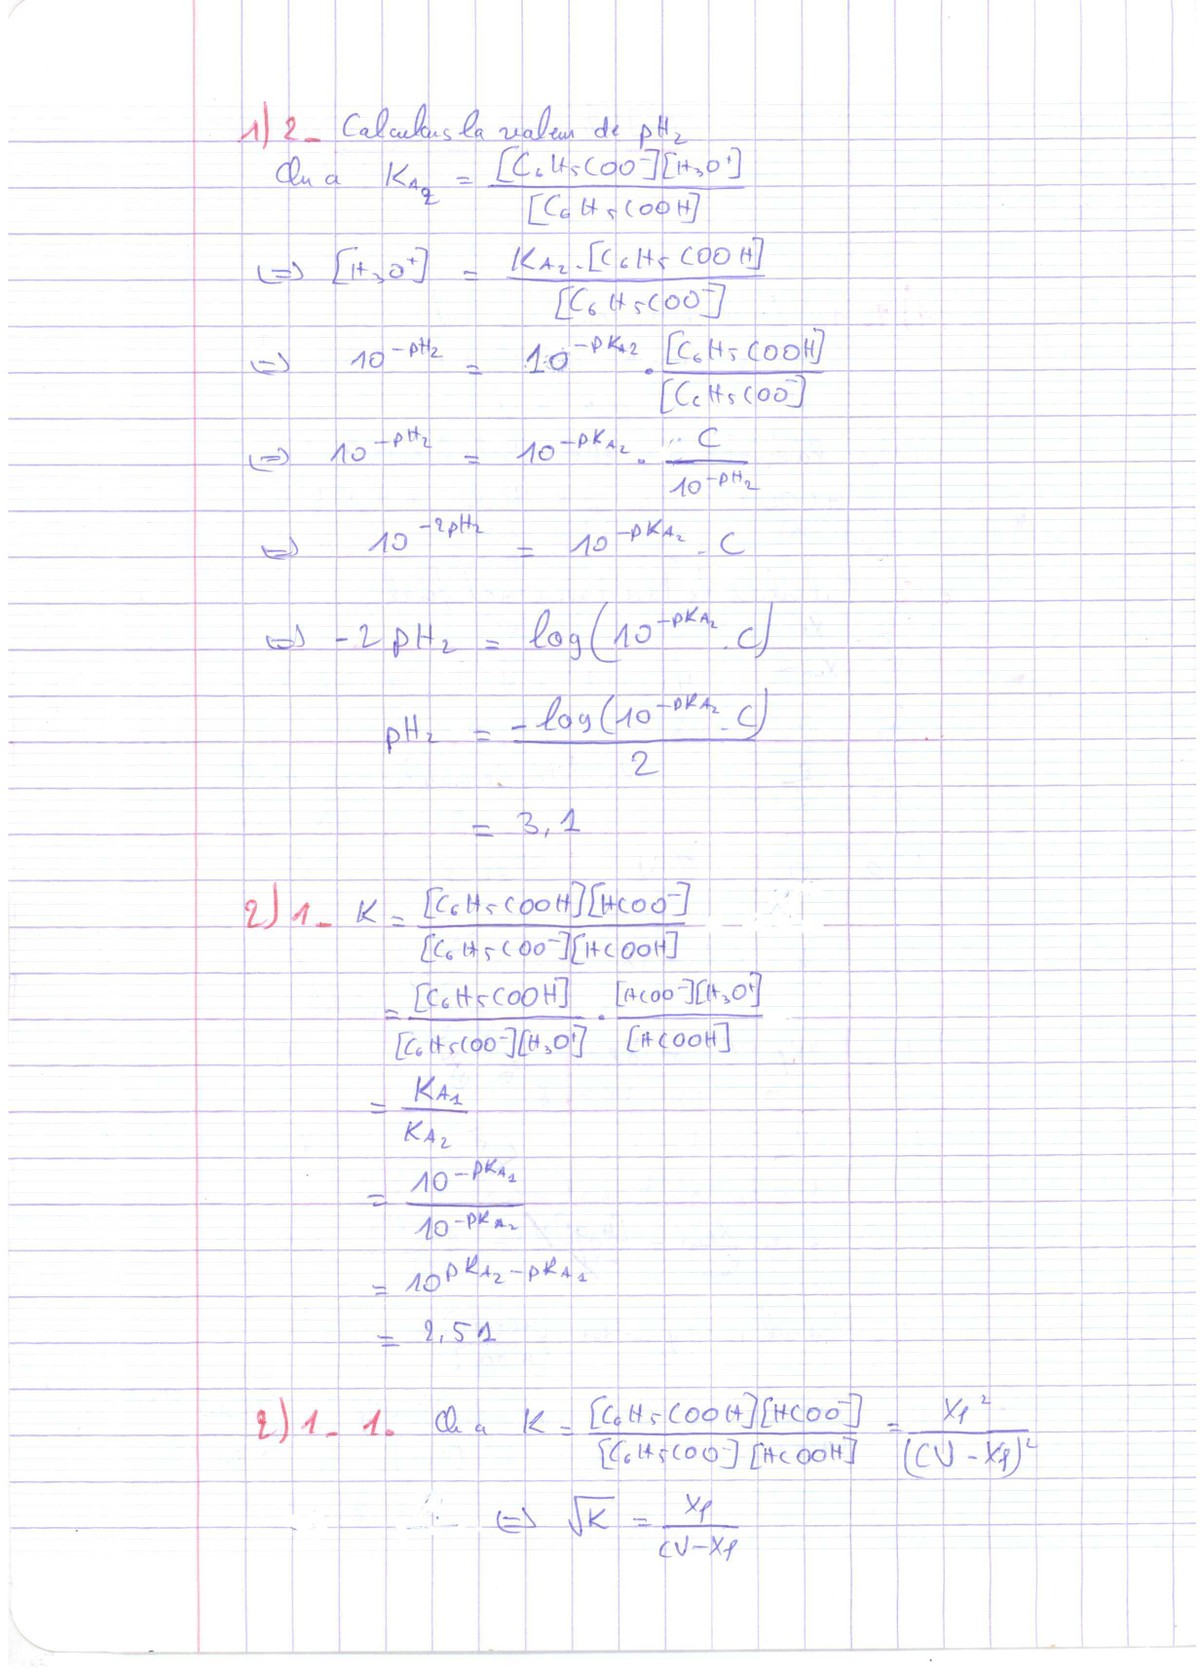 1) 2- Calculons la valeur de pH₂
On a K_A₂ = [C₆H₅COO⁻][H₃O⁺] / [C₆H₅COOH]
⇔ [H₃O⁺] = K_A₂.[C₆H₅COOH] / [C₆H₅COO⁻]
⇔ 10^(-pH₂) = 10^(-pK_A₂) . [C₆H₅COOH] / [C₆H₅COO⁻]
⇔ 10^(-pH₂) = 10^(-pK_A₂) . C / 10^(-pH₂)
⇔ 10^(-2pH₂) = 10^(-pK_A₂) . C
⇔ -2pH₂ = log(10^(-pK_A₂) . C)
pH₂ = -log(10^(-pK_A₂) . C) / 2
= 3,1
2) 1- K = [C₆H₅COOH][HCOO⁻] / [C₆H₅COO⁻][HCOOH]
= [C₆H₅COOH] / [C₆H₅COO⁻][H₃O⁺] . [HCOO⁻][H₃O⁺] / [HCOOH]
= K_A₁ / K_A₂
= 10^(-pK_A₁) / 10^(-pK_A₂)
= 10^(pK_A₂-pK_A₁)
= 2,51
2) 1- 1. On a K = [C₆H₅COOH][HCOO⁻] / [C₆H₅COO⁻][HCOOH] = Xf² / (CV - Xf)²
⇔ √K = Xf / (CV-Xf)